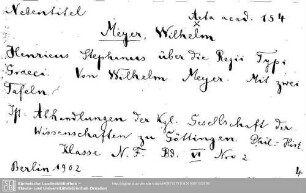 Nebentitel
Acta acad. 154
Meyer, Wilhelm
Henricus Stephanus über die Regii Typi
Graeci. Von Wilhelm Meyer. Mit zwei
Tafeln.
Jn: Abhandlungen der Kgl. Gesellschaft der
Wissenschaften zu Göttingen. Phil.-Hist.
Klasse N. F. Bd. VI Nro 2
Berlin 1902